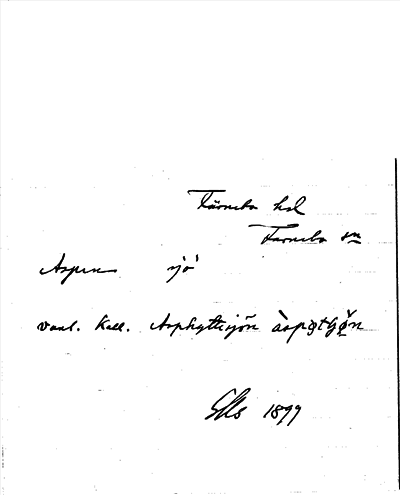 Färnebo hd
Färnebo sn
Aspen sjö
vanl. kall. Asphyttesjön àspətɧø̀n
1899